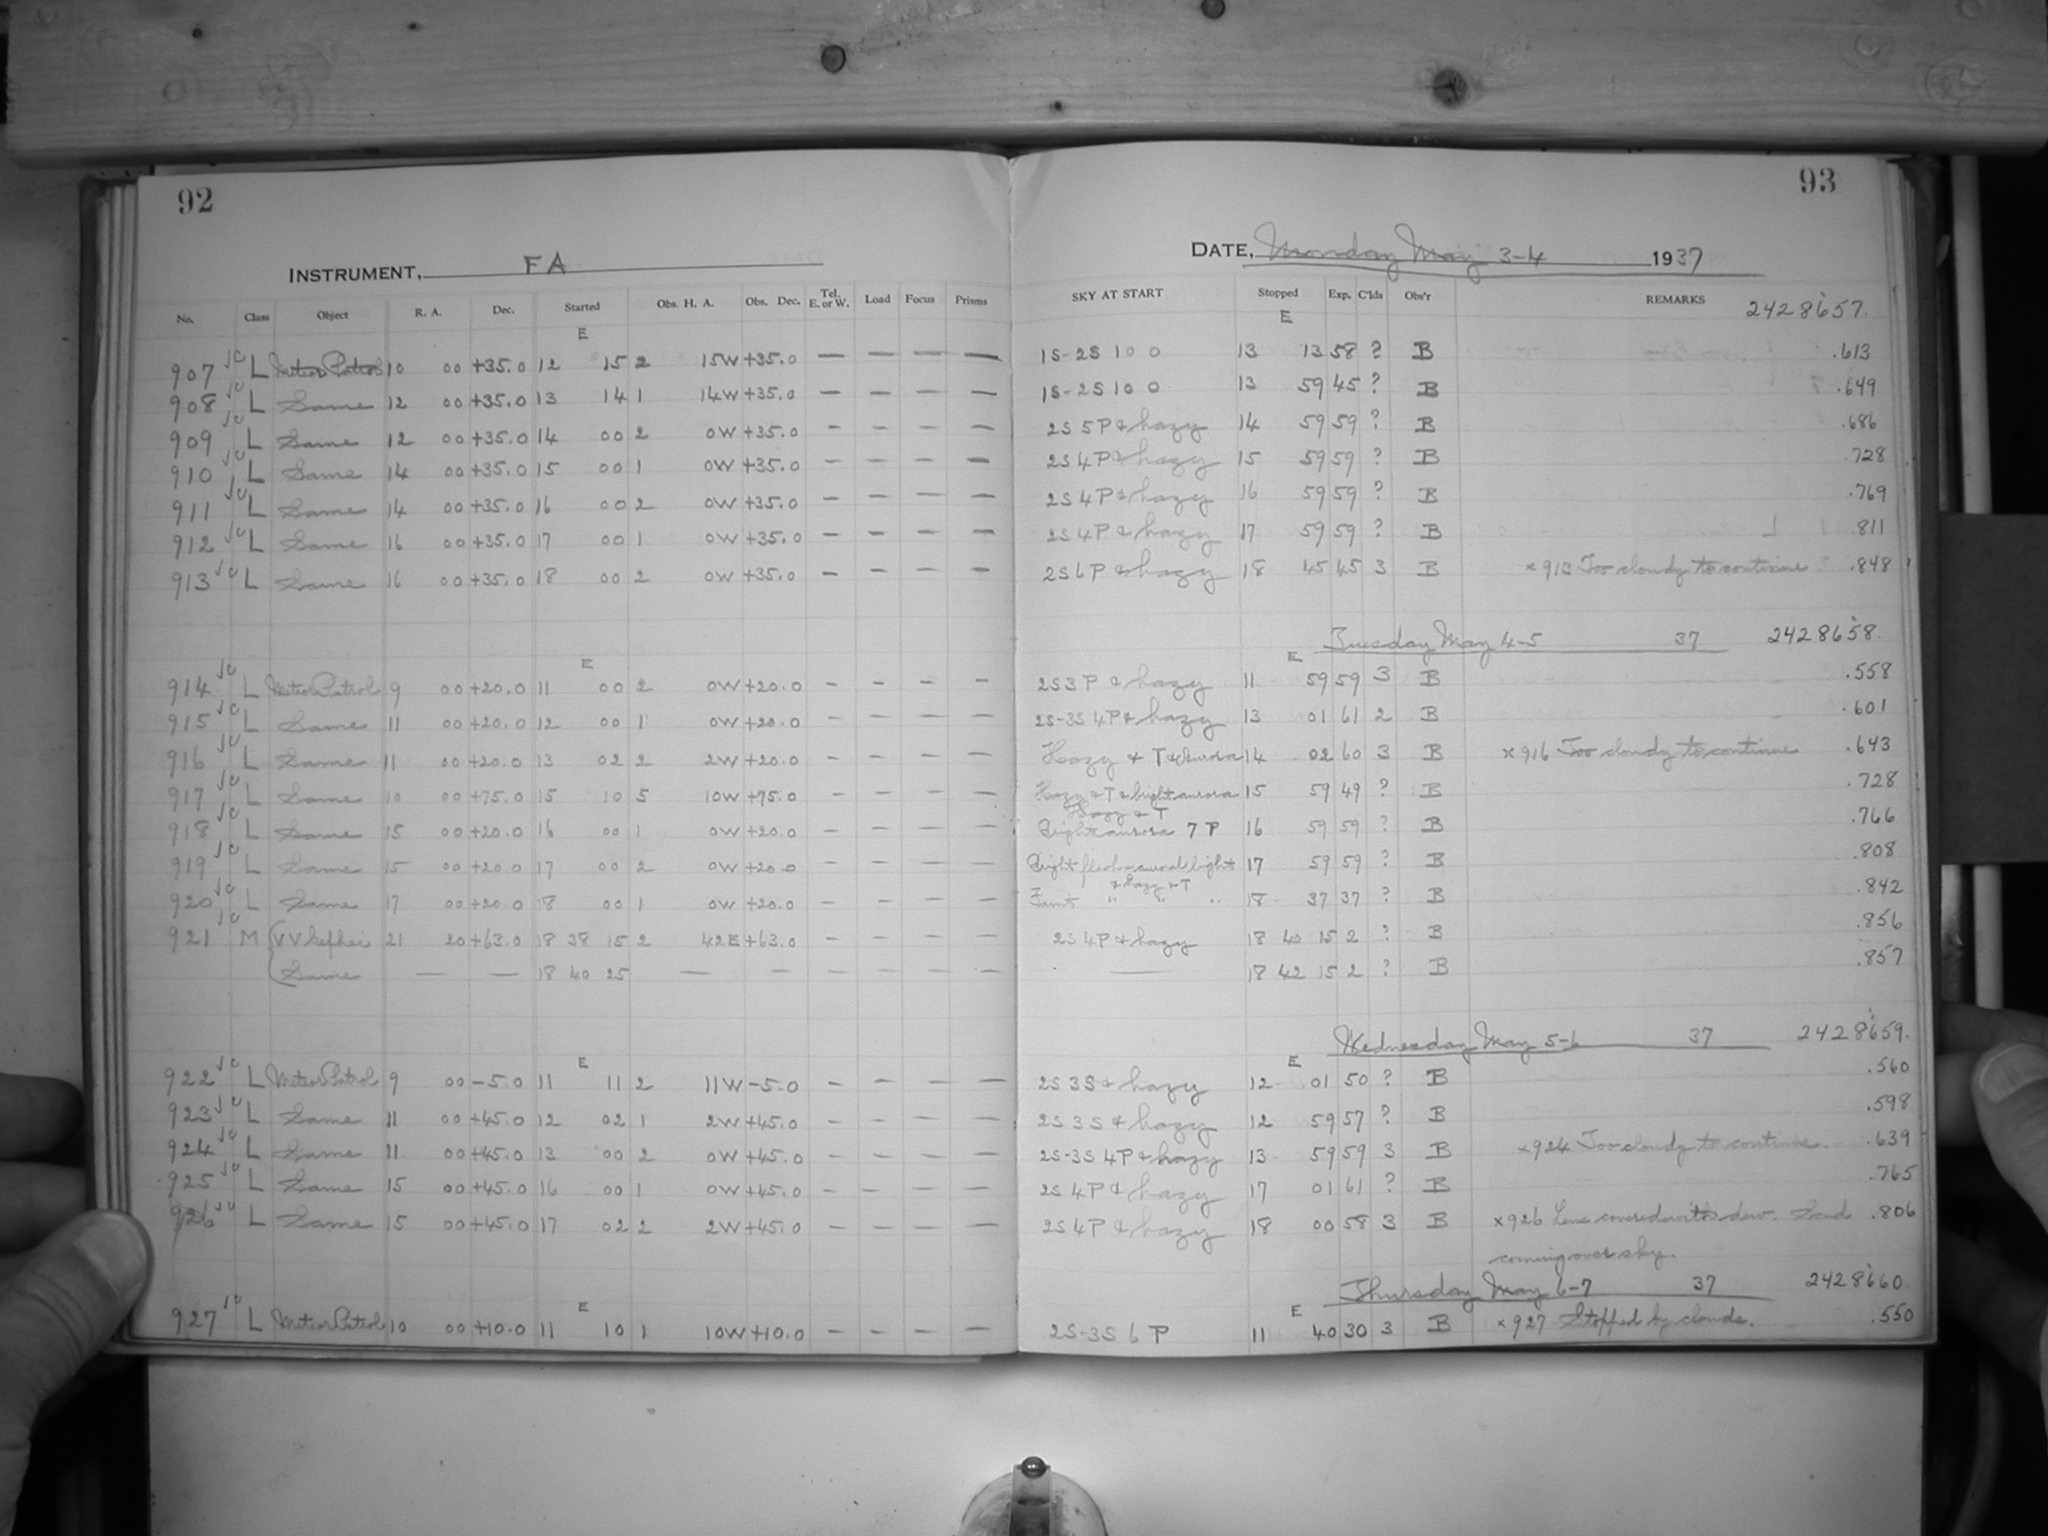 92
93
INSTRUMENT, FA
DATE, Monday May 3-4 1937
No. Class Object R. A. Dec. Started Obs. H. A. Obs. Dec. Tel. E. or W. Load Focus Prisms SKY AT START Stopped Exp. C'lds Obs'r REMARKS 2428657.
E E
907 L Meteor Patrol 10 00 +35.0 12 15 2 15W +35.0 — — — — 1S-2S 10 0 13 13 58 ? B .613
908 L Same 12 00 +35.0 13 14 1 14W +35.0 — — — — 1S-2S 10 0 13 59 45 ? B .649
909 L Same 12 00 +35.0 14 00 2 0W +35.0 — — — — 2S 5P & hazy 14 59 59 ? B .686
910 L Same 14 00 +35.0 15 00 1 0W +35.0 — — — — 2S 4P & hazy 15 59 59 ? B .728
911 L Same 14 00 +35.0 16 00 2 0W +35.0 — — — — 2S 4P & hazy 16 59 59 ? B .769
912 L Same 16 00 +35.0 17 00 1 0W +35.0 — — — — 2S 4P & hazy 17 59 59 ? B .811
913 L Same 16 00 +35.0 18 00 2 0W +35.0 — — — — 2S 6P & hazy 18 45 45 3 B x 913 Too cloudy to continue .848
Tuesday May 4-5 37 2428658.
E E
914 L Meteor Patrol 9 00 +20.0 11 00 2 0W +20.0 — — — — 2S 3P & hazy 11 59 59 3 B .558
915 L Same 11 00 +20.0 12 00 1 0W +20.0 — — — — 2S-3S 4P & hazy 13 01 61 2 B .601
916 L Same 11 00 +20.0 13 02 2 2W +20.0 — — — — Hazy & T & Aurora 14 02 60 3 B x 916 Too cloudy to continue .643
917 L Same 10 00 +75.0 15 10 5 10W +75.0 — — — — Hazy & T & bright aurora 15 59 49 ? B .728
Hazy & T
918 L Same 15 00 +20.0 16 00 1 0W +20.0 — — — — Bright aurora 7 P 16 59 59 ? B .766
919 L Same 15 00 +20.0 17 00 2 0W +20.0 — — — — Bright flashes auroral light 17 59 59 ? B .808
& hazy & T
920 L Same 17 00 +20.0 18 00 1 0W +20.0 — — — — Faint " " " 18 37 37 ? B .842
921 M VV Cephei 21 20 +63.0 18 38 15 2 42E +63.0 — — — — 2S 4P & hazy 18 40 15 2 ? B .856
Same — — 18 40 25 — — — — — — — 18 42 15 2 ? B .857
Wednesday May 5-6 37 2428659.
E E
922 L Meteor Patrol 9 00 -5.0 11 11 2 11W -5.0 — — — — 2S 3S & hazy 12 01 50 ? B .560
923 L Same 11 00 +45.0 12 02 1 2W +45.0 — — — — 2S 3S & hazy 12 59 57 ? B .598
924 L Same 11 00 +45.0 13 00 2 0W +45.0 — — — — 2S-3S 4P & hazy 13 59 59 3 B x 924 Too cloudy to continue. .639
925 L Same 15 00 +45.0 16 00 1 0W +45.0 — — — — 2S 4P & hazy 17 01 61 ? B .765
926 L Same 15 00 +45.0 17 02 2 2W +45.0 — — — — 2S 4P & hazy 18 00 58 3 B x 926 Lens covered with dew. Scud .806
coming over sky.
Thursday May 6-7 37 2428660.
E E
927 L Meteor Patrol 10 00 +10.0 11 10 1 10W +10.0 — — — — 2S-3S 6 P 11 40 30 3 B x 927 Stopped by clouds. .550